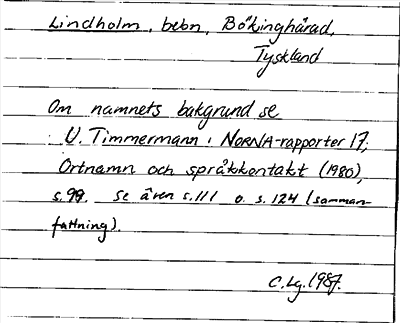 Lindholm, bebn, Bökinghärad,
Tyskland
Om namnets bakgrund se
U. Timmermann i NORNA-rapporter 17,
Ortnamn och språkkontakt (1980),
s. 99. Se även s. 111 o. s. 124 (samman-
fattning).
C. Lg. 1987.